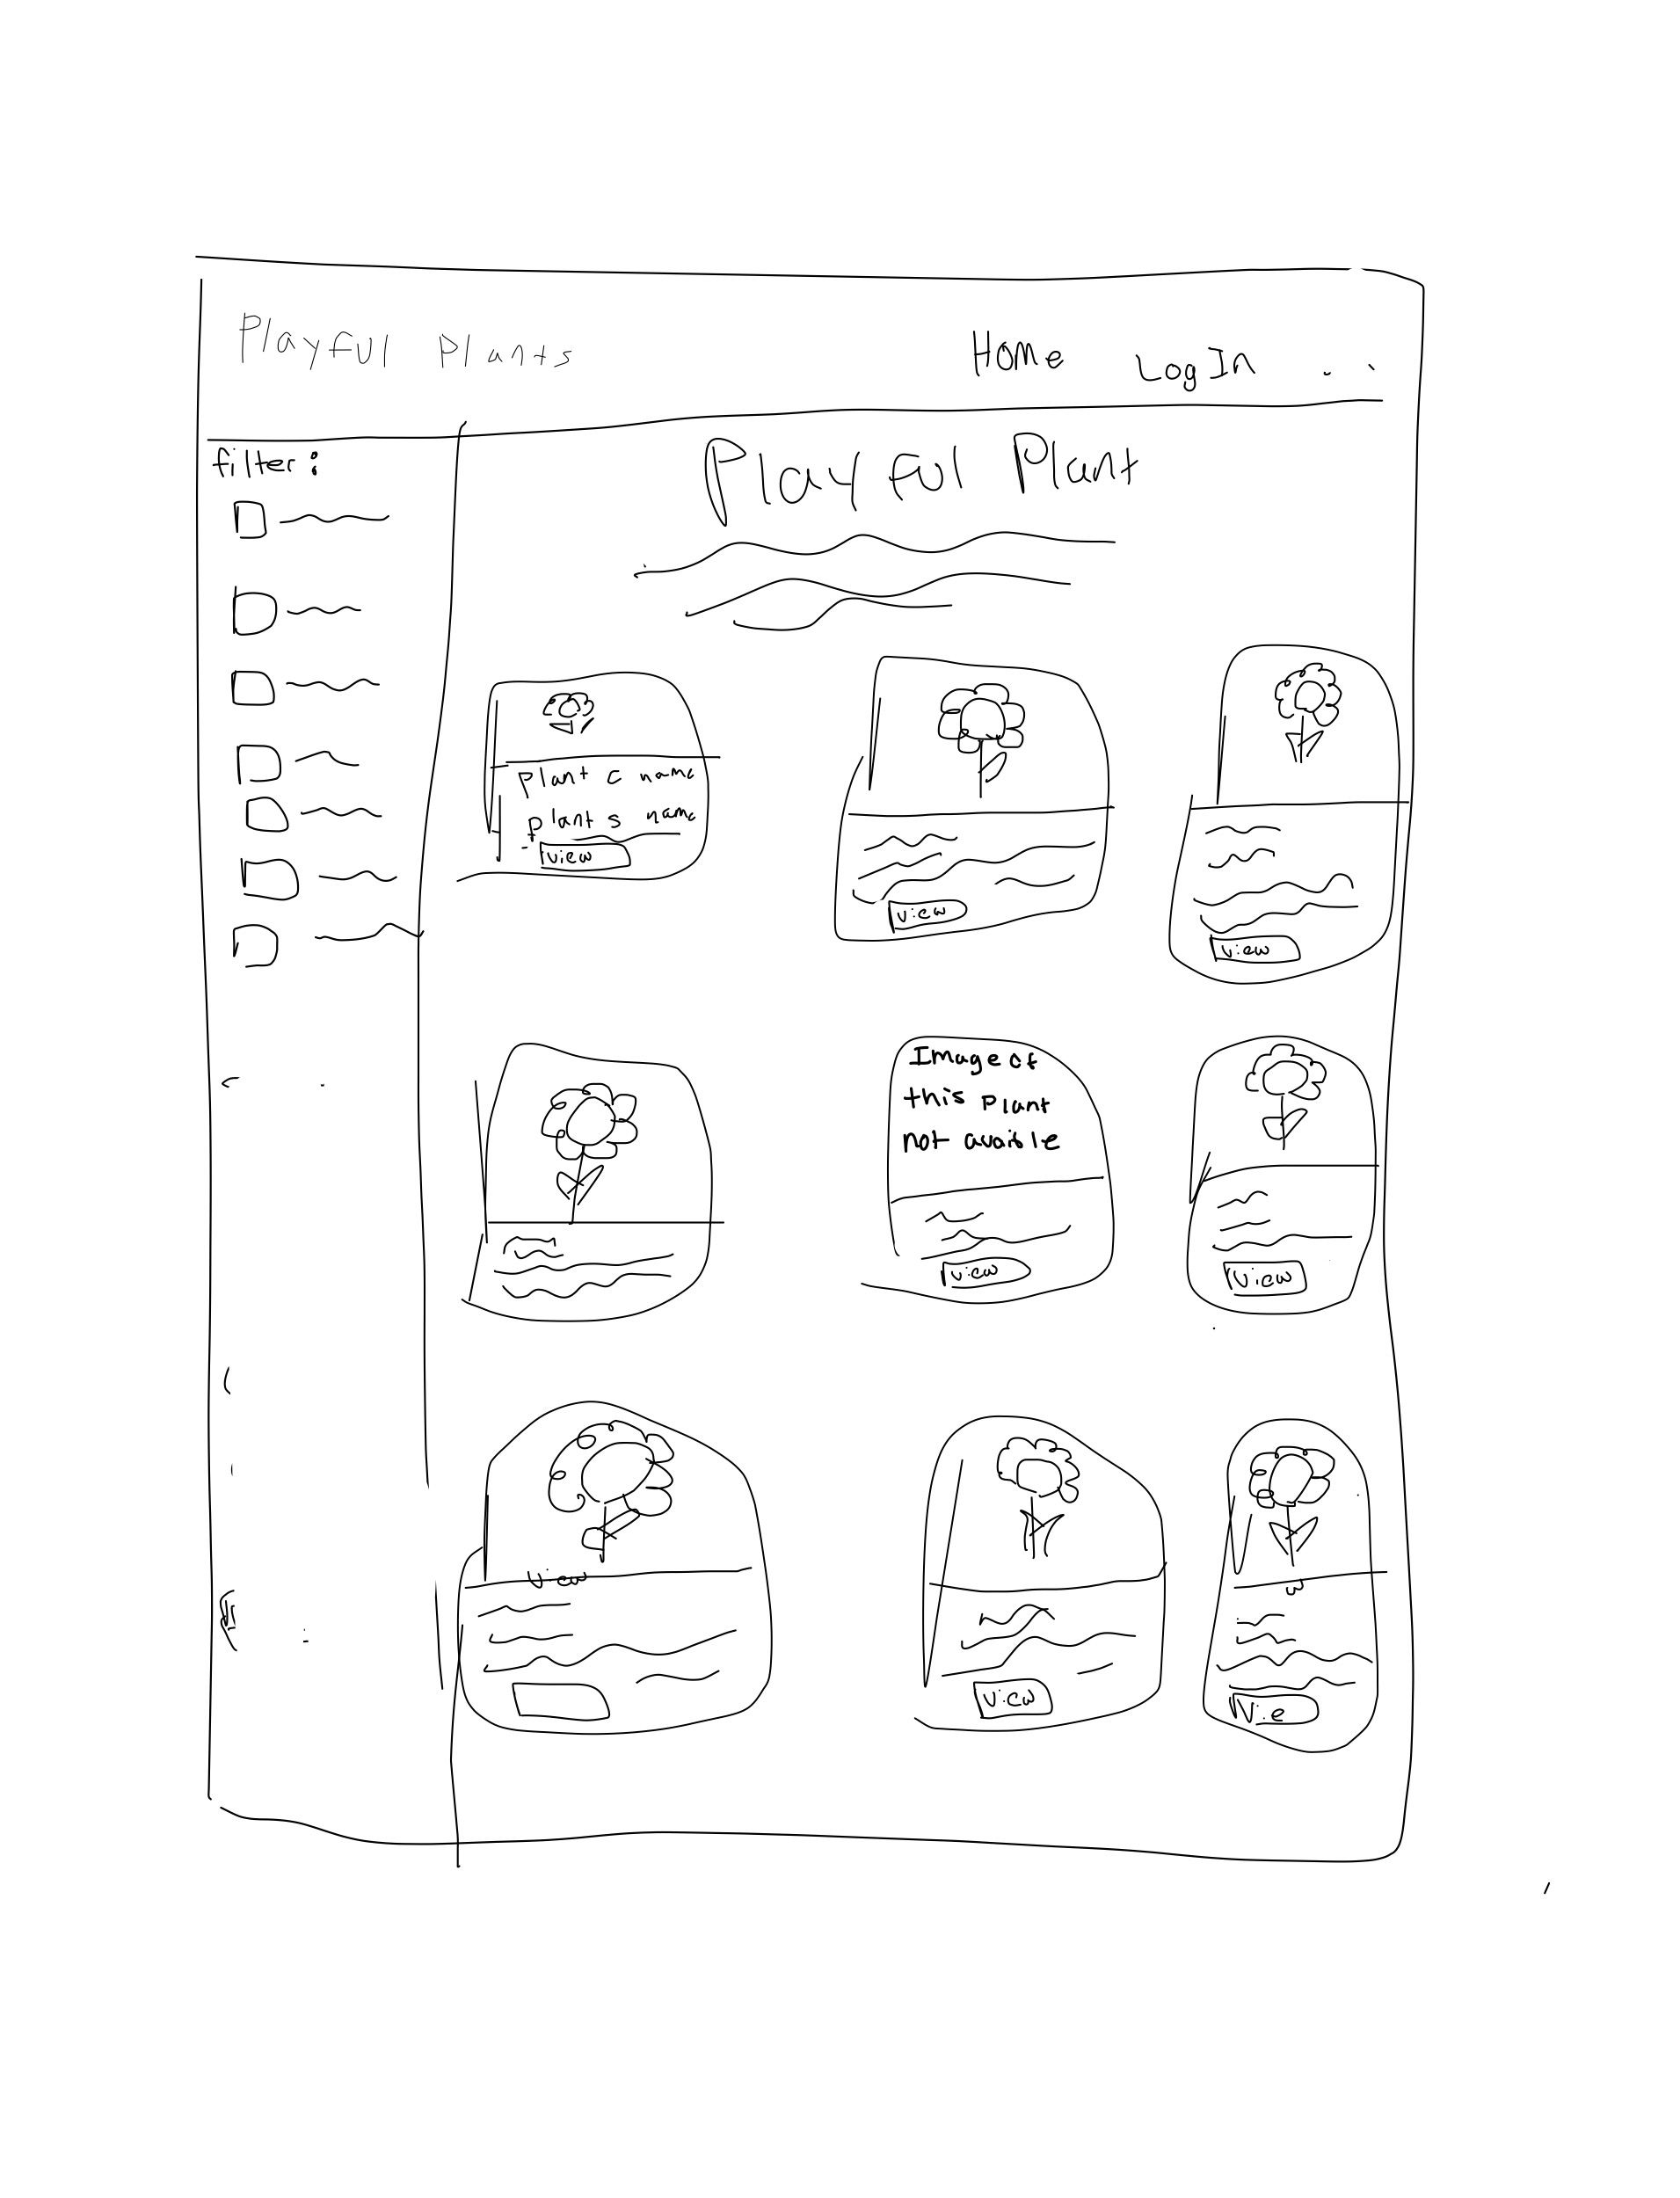 Playful Plants
Home
LogIn
filter:
Playful Plant
Plant c name
plant s name
view
view
view
Image of
this plant
not avaible
view
view
view
view
Vie